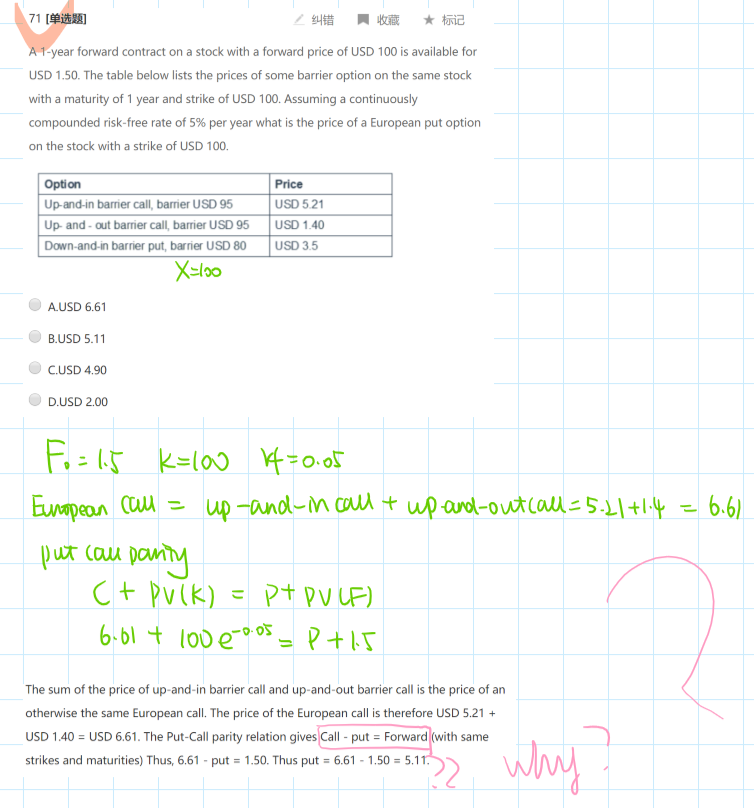 71 [单选题] 纠错 收藏 标记
A 1-year forward contract on a stock with a forward price of USD 100 is available for
USD 1.50. The table below lists the prices of some barrier option on the same stock
with a maturity of 1 year and strike of USD 100. Assuming a continuously
compounded risk-free rate of 5% per year what is the price of a European put option
on the stock with a strike of USD 100.
Option Price
Up-and-in barrier call, barrier USD 95 USD 5.21
Up- and - out barrier call, barrier USD 95 USD 1.40
Down-and-in barrier put, barrier USD 80 USD 3.5
X=100
A.USD 6.61
B.USD 5.11
C.USD 4.90
D.USD 2.00
F₀ = 1.5 K=100 rf=0.05
European call = up-and-in call + up-and-out call = 5.21+1.4 = 6.61
put call parity
C + PV(K) = P + PV(F)
6.61 + 100e^-0.05 = P + 1.5
The sum of the price of up-and-in barrier call and up-and-out barrier call is the price of an
otherwise the same European call. The price of the European call is therefore USD 5.21 +
USD 1.40 = USD 6.61. The Put-Call parity relation gives Call - put = Forward (with same
strikes and maturities) Thus, 6.61 - put = 1.50. Thus put = 6.61 - 1.50 = 5.11.
?? why?